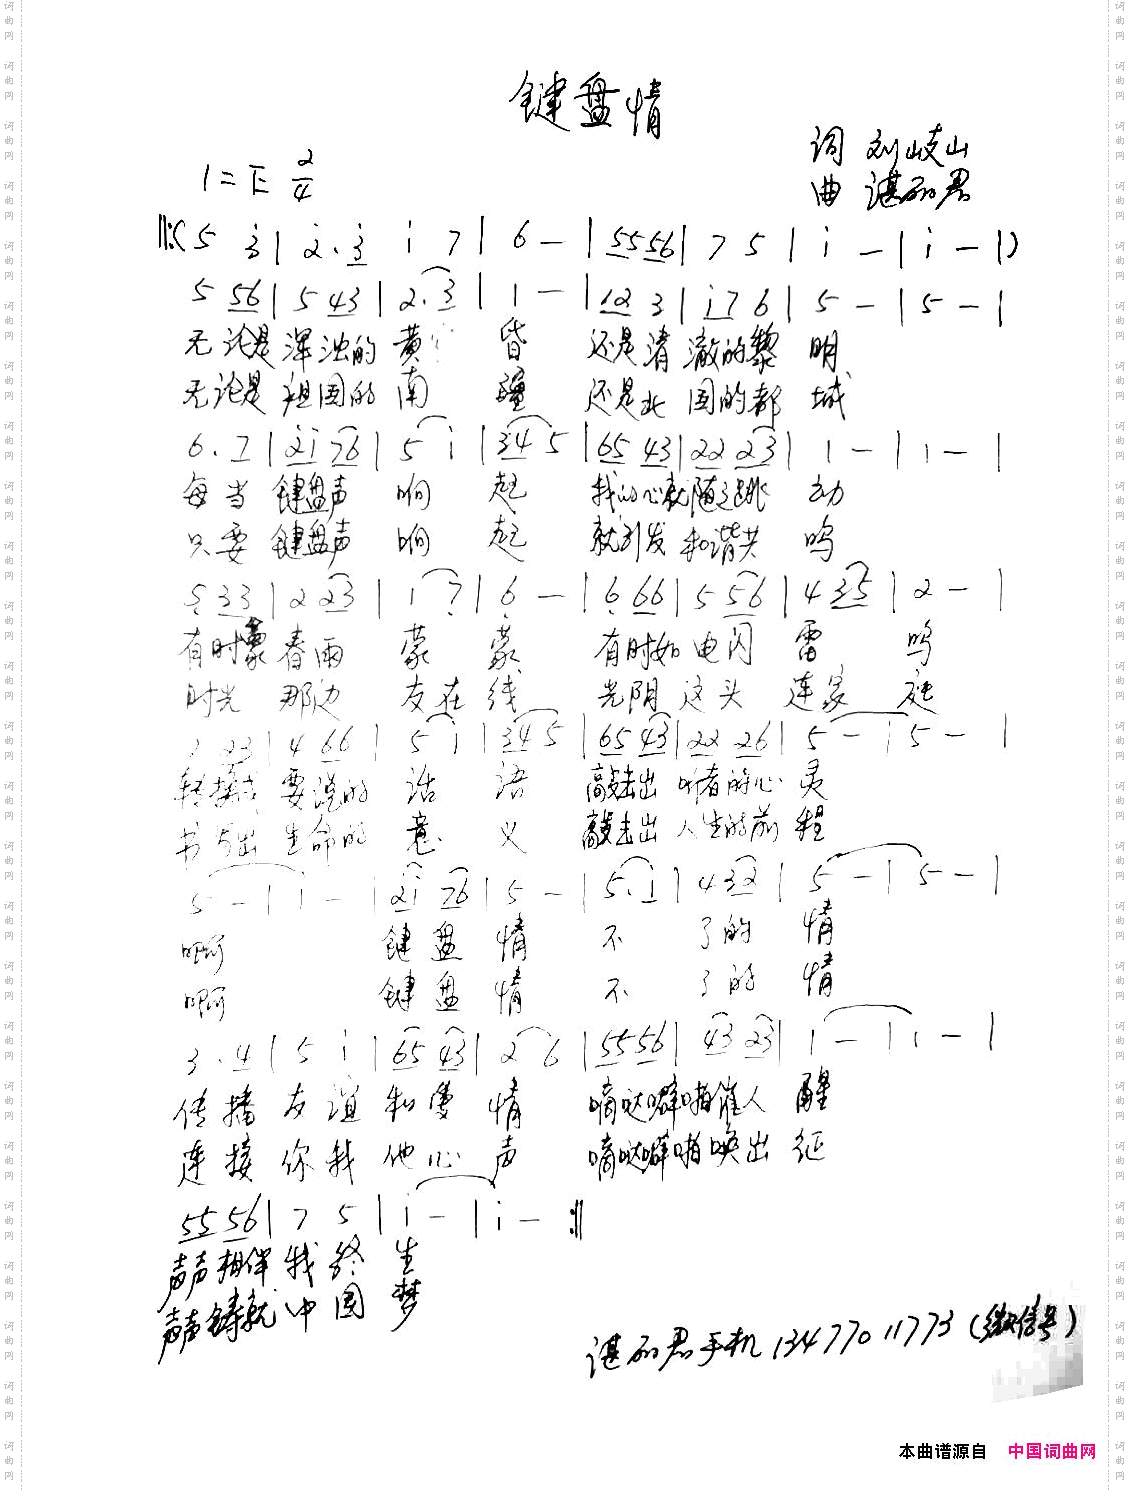 键盘情
词 刘岐山
1=E 2/4
曲 谌丽君
‖:( 5 3̇ | 2̇. 3̇ 1̇ 7 | 6 - | 5556 | 7 5 | 1̇ - | 1̇ - | )
5 56 | 5 43 | 2. 3 | 1 - | 12 3 | 1̇7 6 | 5 - | 5 - |
无论是浑浊的黄昏 还是清澈的黎明
无论是祖国的南疆 还是北国的都城
6. 7 | 2̇1̇ 76 | 5 1̇ | 34 5 | 65 43 | 22 23 | 1 - | 1 - |
每当键盘声响起 我的心就随之跳动
只要键盘声响起 就引发和谐共鸣
5̣ 33 | 2 23 | 1 7̣ | 6̣ - | 6̣ 66 | 5 56 | 4 35 | 2 - |
有时象春雨蒙蒙 有时如电闪雷鸣
时光那边友在线 光阴这头连家庭
23 | 4 66 | 5 1̇ | 34 5 | 65 43 | 22 26 | 5 - | 5 - |
转换成要说的话语 敲击出听者的心灵
书写出生命的意义 敲击出人生的前程
5 - | 1̇ - | 2̇1̇ 76 | 5 - | 5. 1̇ | 4 32 | 5 - | 5 - |
啊 键盘情 不了的情
啊 键盘情 不了的情
3. 4 | 5 1̇ | 65 43 | 2 6 | 5556 | 43 23 | 1 - | 1 - |
传播友谊和爱情 嘀哒噼啪催人醒
连接你我他心声 嘀哒噼啪唤出征
55 56 | 7 5 | 1̇ - | 1̇ - :‖
声声相伴我终生
声声铸就中国梦
谌丽君手机 13477011773 (微信号)
本曲谱源自 中国词曲网